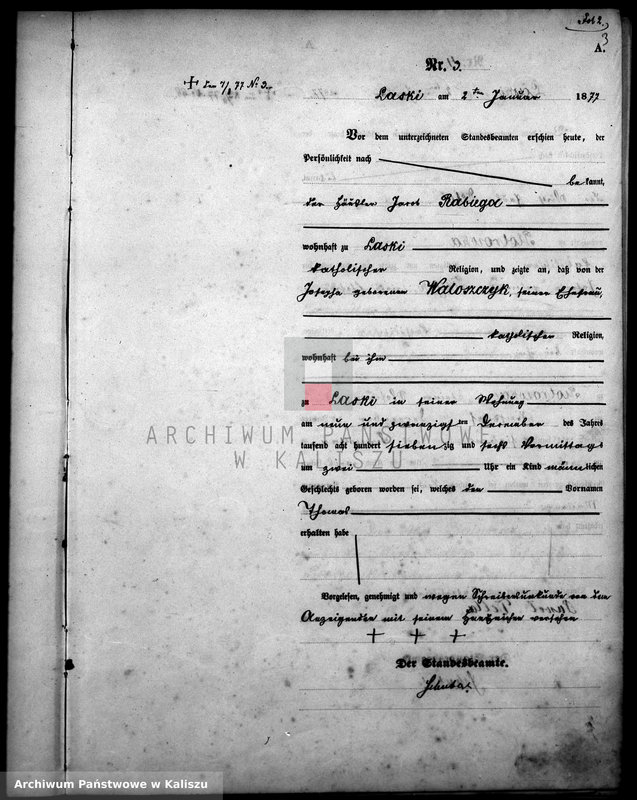 Fol 2.
3
A.
Nr. 3.
Laski am 2ten Januar 1877
Vor dem unterzeichneten Standesbeamten erschien heute, der
Persönlichkeit nach
bekannt,
der Häusler Jacob Rabiega
wohnhaft zu Laski
katholischer Religion, und zeigte an, daß von der
Josepha geborenen Waloszczyk, seiner Ehefrau,
katholischer Religion,
wohnhaft bei ihm
zu Laski in seiner Wohnung
am neun und zwanzigsten Dezember des Jahres
tausend acht hundert siebenzig und sechs Vormittags
um zwei Uhr ein Kind männlichen
Geschlechts geboren worden sei, welches den Vornamen
Thomas
erhalten habe
Vorgelesen, genehmigt und wegen Schreibensunkunde von dem
Anzeigenden mit seinem Handzeichen versehen
+ + +
Der Standesbeamte.
ARCHIWUM PAŃSTWOWE
W KALISZU
Archiwum Państwowe w Kaliszu